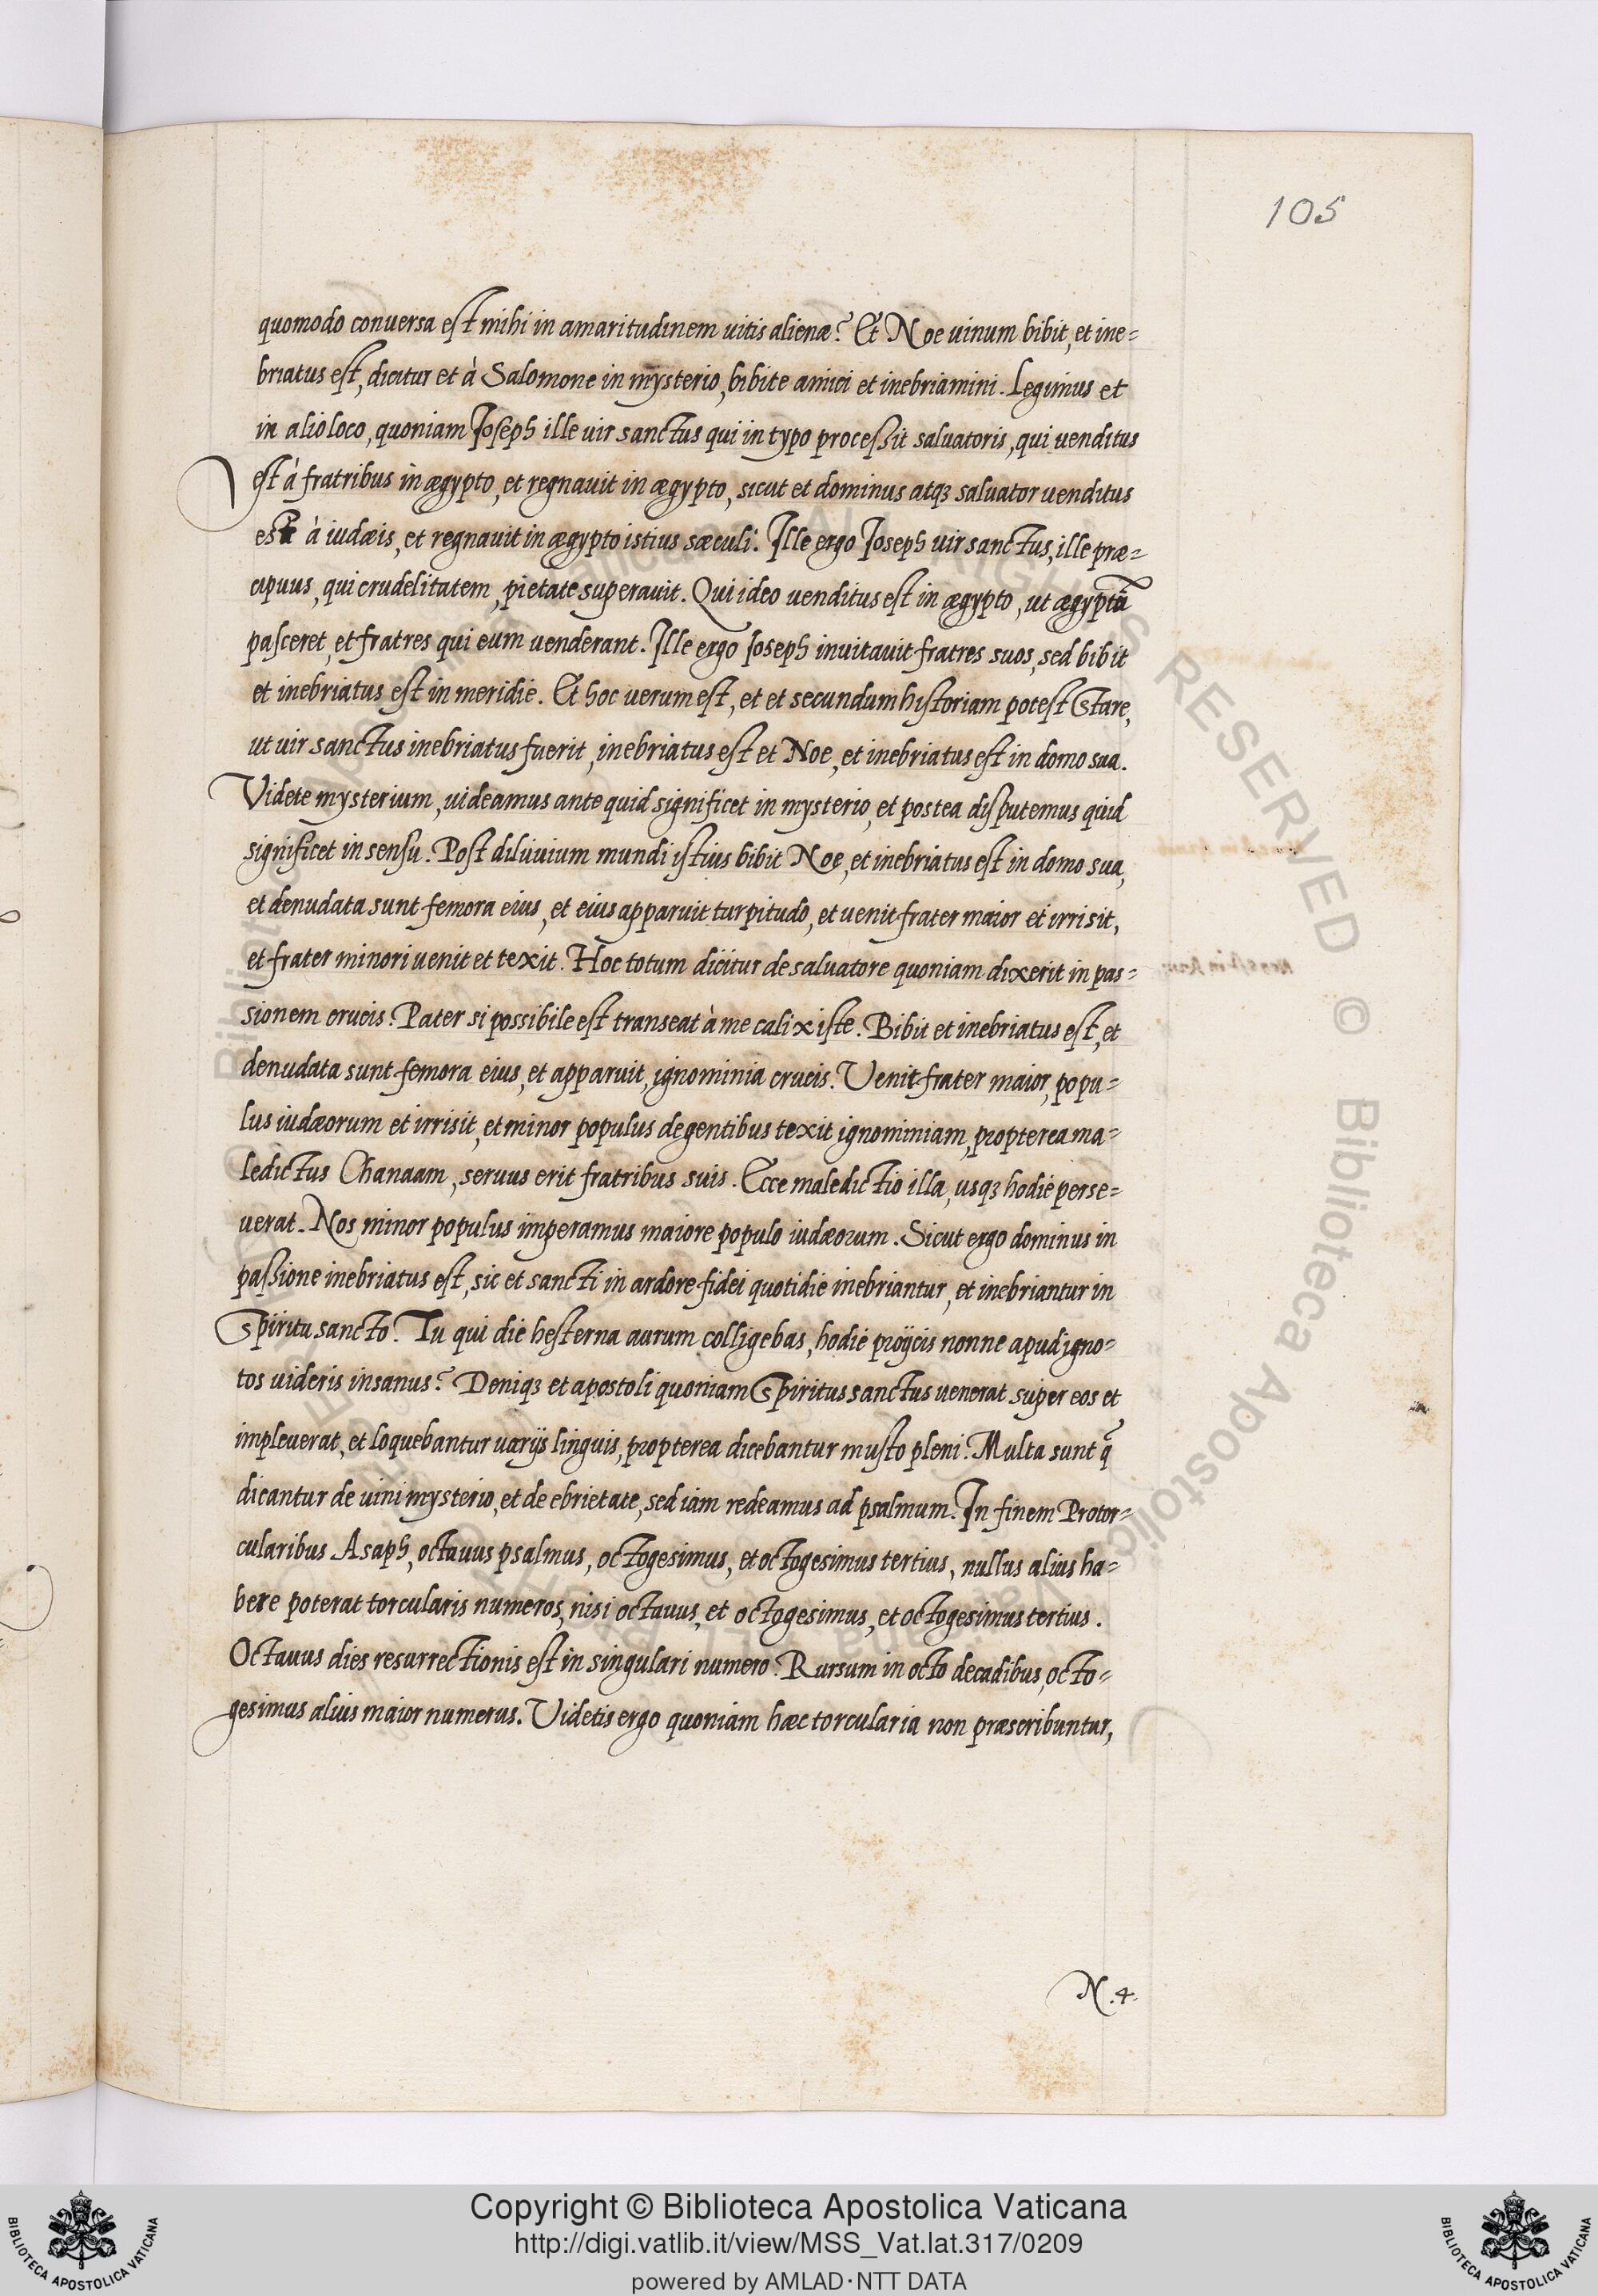 105
quomodo conuersa est mihi in amaritudinem uitis alienæ? Et Noe uinum bibit, et ine=
briatus est, dicitur et à Salomone in mysterio, bibite amici et inebriamini. Legimus et
in alio loco, quoniam Joseph ille uir sanctus qui in typo processit saluatoris, qui uenditus
est à fratribus in ægypto, et regnauit in ægypto, sicut et dominus atqꝫ saluator uenditus
est à iudæis, et regnauit in ægypto istius sæculi. Ille ergo Joseph uir sanctus, ille præ=
cipuus, qui crudelitatem, pietate superauit. Qui ideo uenditus est in ægypto, ut ægyptū
pasceret, et fratres qui eum uenderant. Ille ergo Joseph inuitauit fratres suos, sed bibit
et inebriatus est in meridie. Et hoc uerum est, et et secundum historiam potest stare,
ut uir sanctus inebriatus fuerit, inebriatus est et Noe, et inebriatus est in domo sua.
Videte mysterium, uideamus ante quid significet in mysterio, et postea disputemus quid
significet in sensu. Post diluuium mundi istius bibit Noe, et inebriatus est in domo sua,
et denudata sunt femora eius, et eius apparuit turpitudo, et uenit frater maior et irrisit,
et frater minori uenit et texit. Hoc totum dicitur de saluatore quoniam dixerit in pas=
sionem crucis. Pater si possibile est transeat à me calix iste. Bibit et inebriatus est, et
denudata sunt femora eius, et apparuit, ignominia crucis. Venit frater maior, popu=
lus iudæorum et irrisit, et minor populus de gentibus texit ignominiam, propterea ma=
ledictus Chanaam, seruus erit fratribus suis. Ecce maledictio illa, usqꝫ hodie perse=
uerat. Nos minor populus imperamus maiore populo iudæorum. Sicut ergo dominus in
passione inebriatus est, sic et sancti in ardore fidei quotidie inebriantur, et inebriantur in
Spiritu sancto. Tu qui die hesterna aurum colligebas, hodie proijcis nonne apud igno=
tos uideris insanus? Deniqꝫ et apostoli quoniam Spiritus sanctus uenerat super eos et
impleuerat, et loquebantur uarijs linguis, propterea dicebantur musto pleni. Multa sunt q̃
dicantur de uini mysterio, et de ebrietate, sed iam redeamus ad psalmum. In finem Pro tor=
cularibus Asaph, octauus psalmus, octogesimus, et octogesimus tertius, nullus alius ha=
bere poterat torcularis numeros, nisi octauus, et octogesimus, et octogesimus tertius.
Octauus dies resurrectionis est in singulari numero. Rursum in octo decadibus, octo=
gesimus alius maior numerus. Videtis ergo quoniam hæc torcularia non præscribuntur,
N.4.
Copyright © Biblioteca Apostolica Vaticana
http://digi.vatlib.it/view/MSS_Vat.lat.317/0209
powered by AMLAD·NTT DATA
BIBLIOTECA APOSTOLICA VATICANA
BIBLIOTECA APOSTOLICA VATICANA